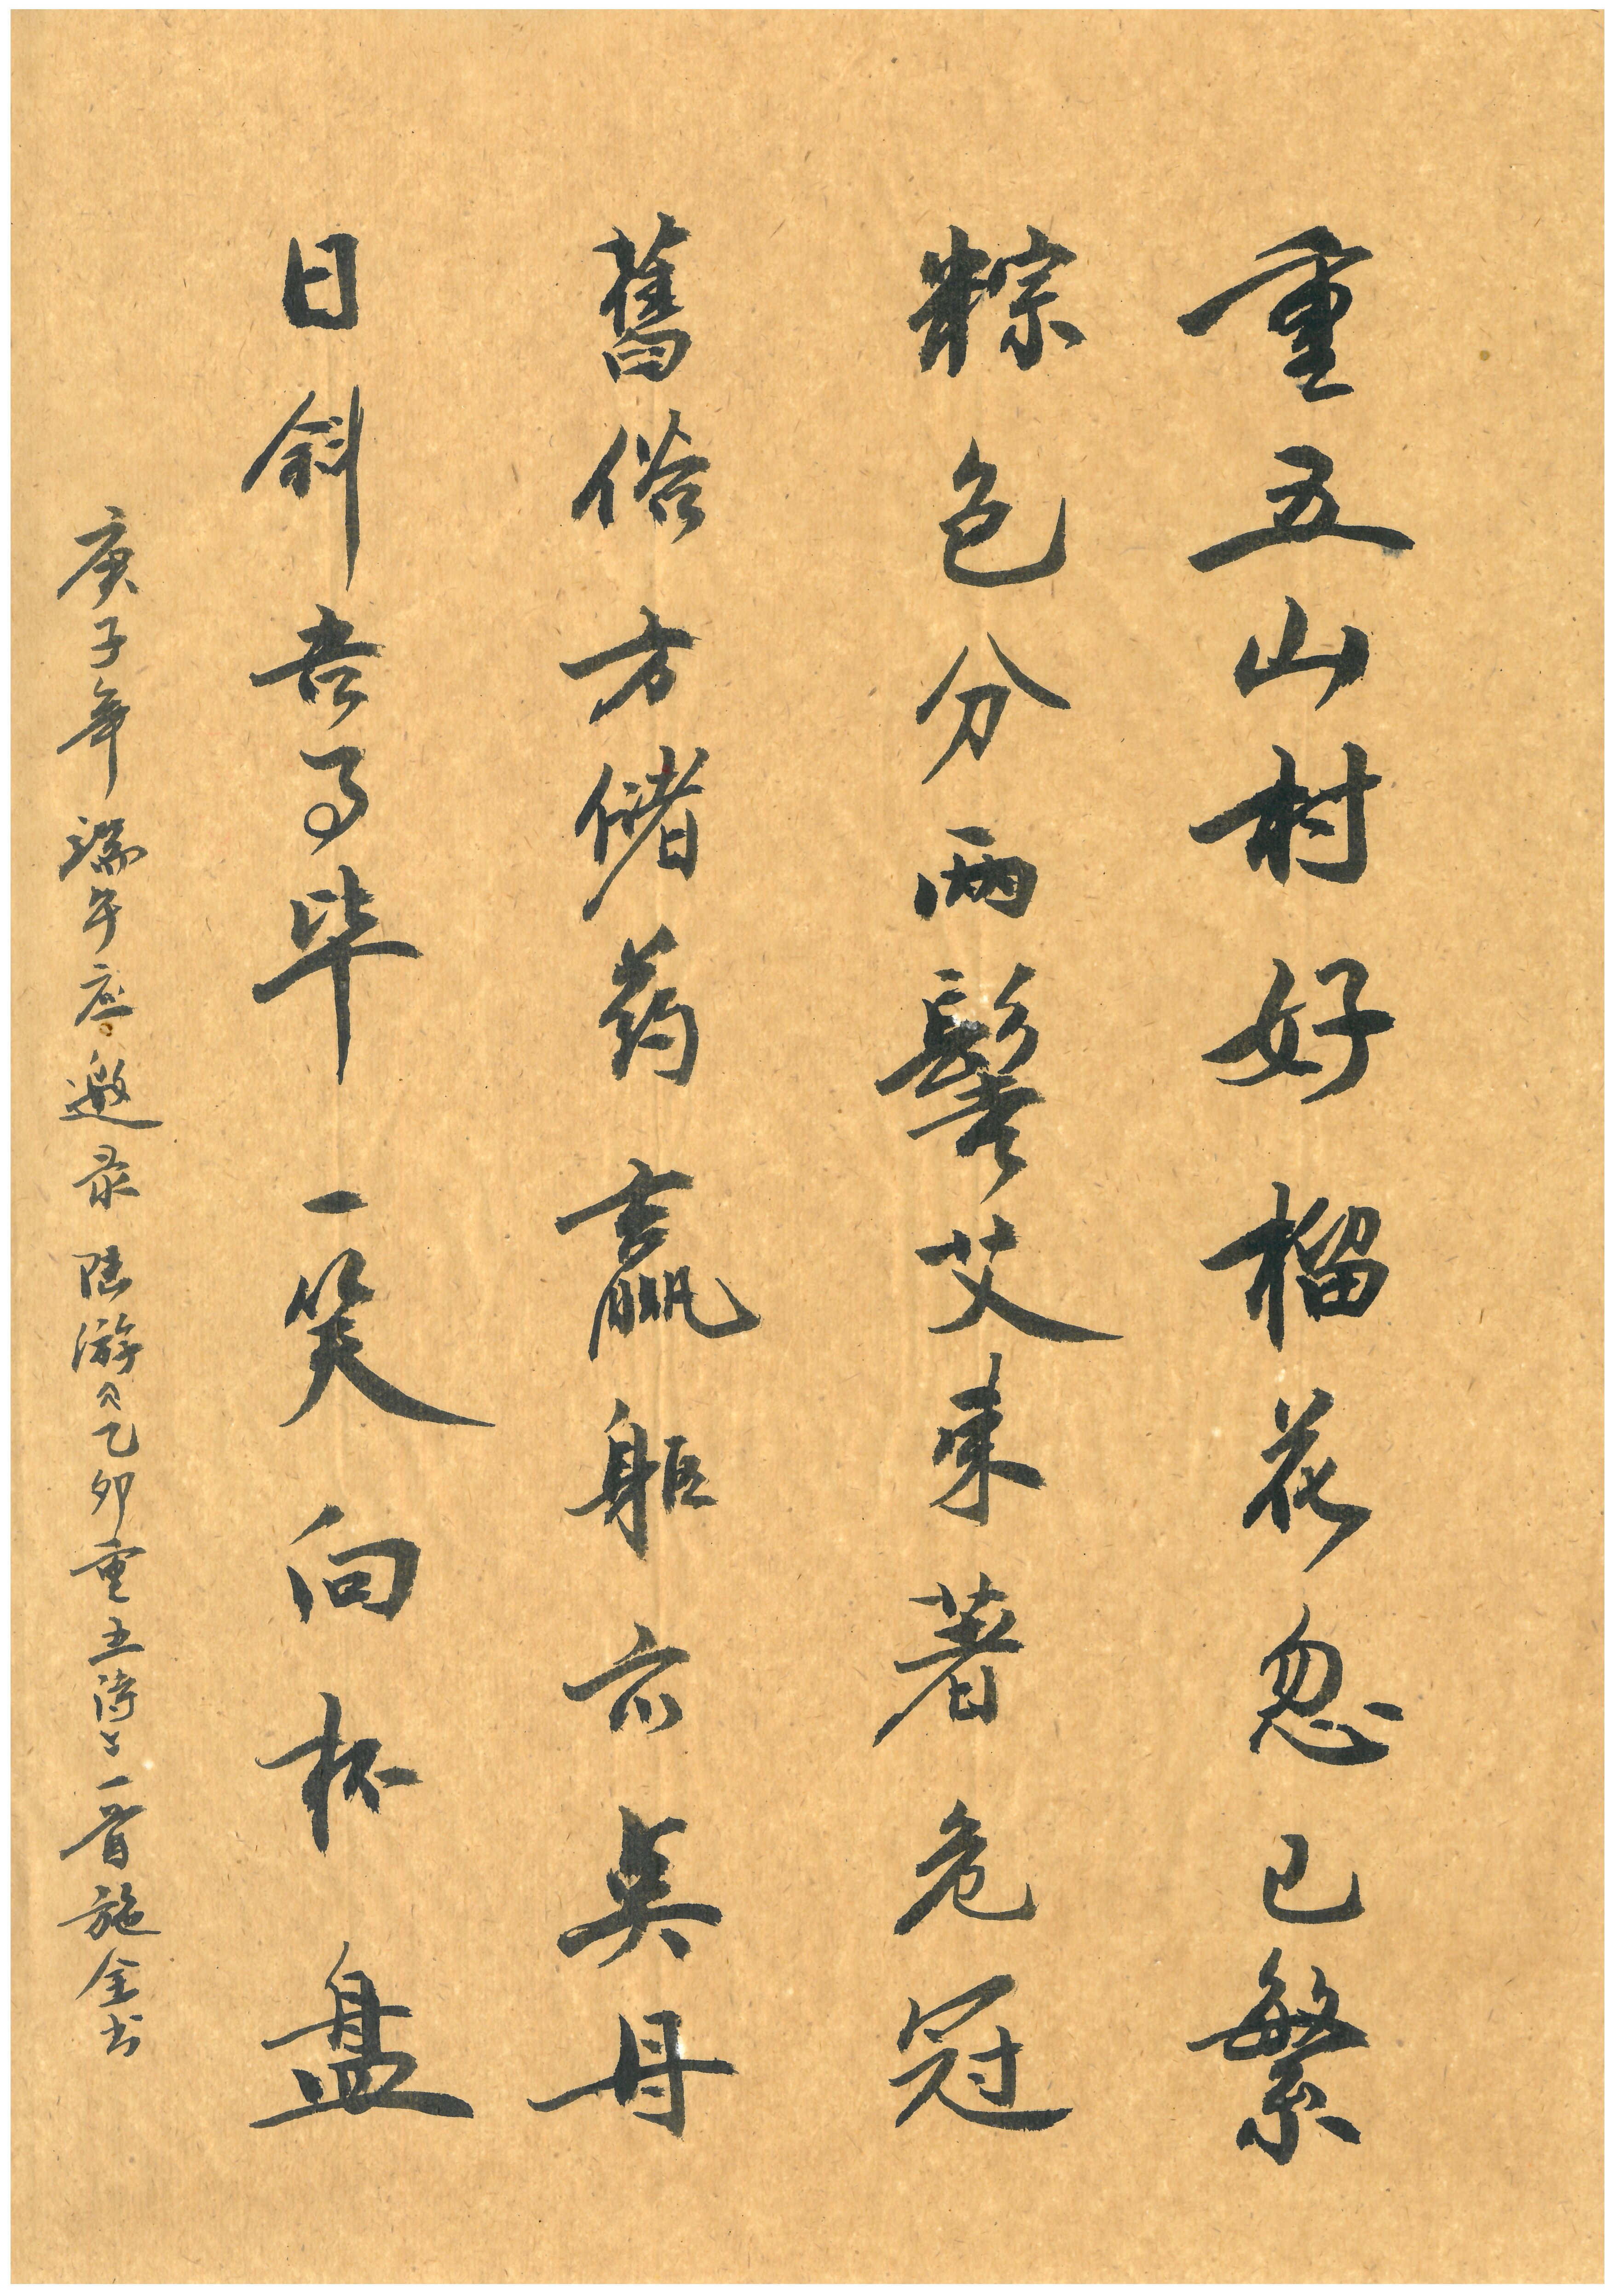 重五山村好榴花忽已繁
粽包分兩髻艾束著危冠
舊俗方儲葯羸躯亦奌丹
日斜吾事毕一笑向杯盘
庚子年端午应邀录陆游之乙卯重五诗一首施金书